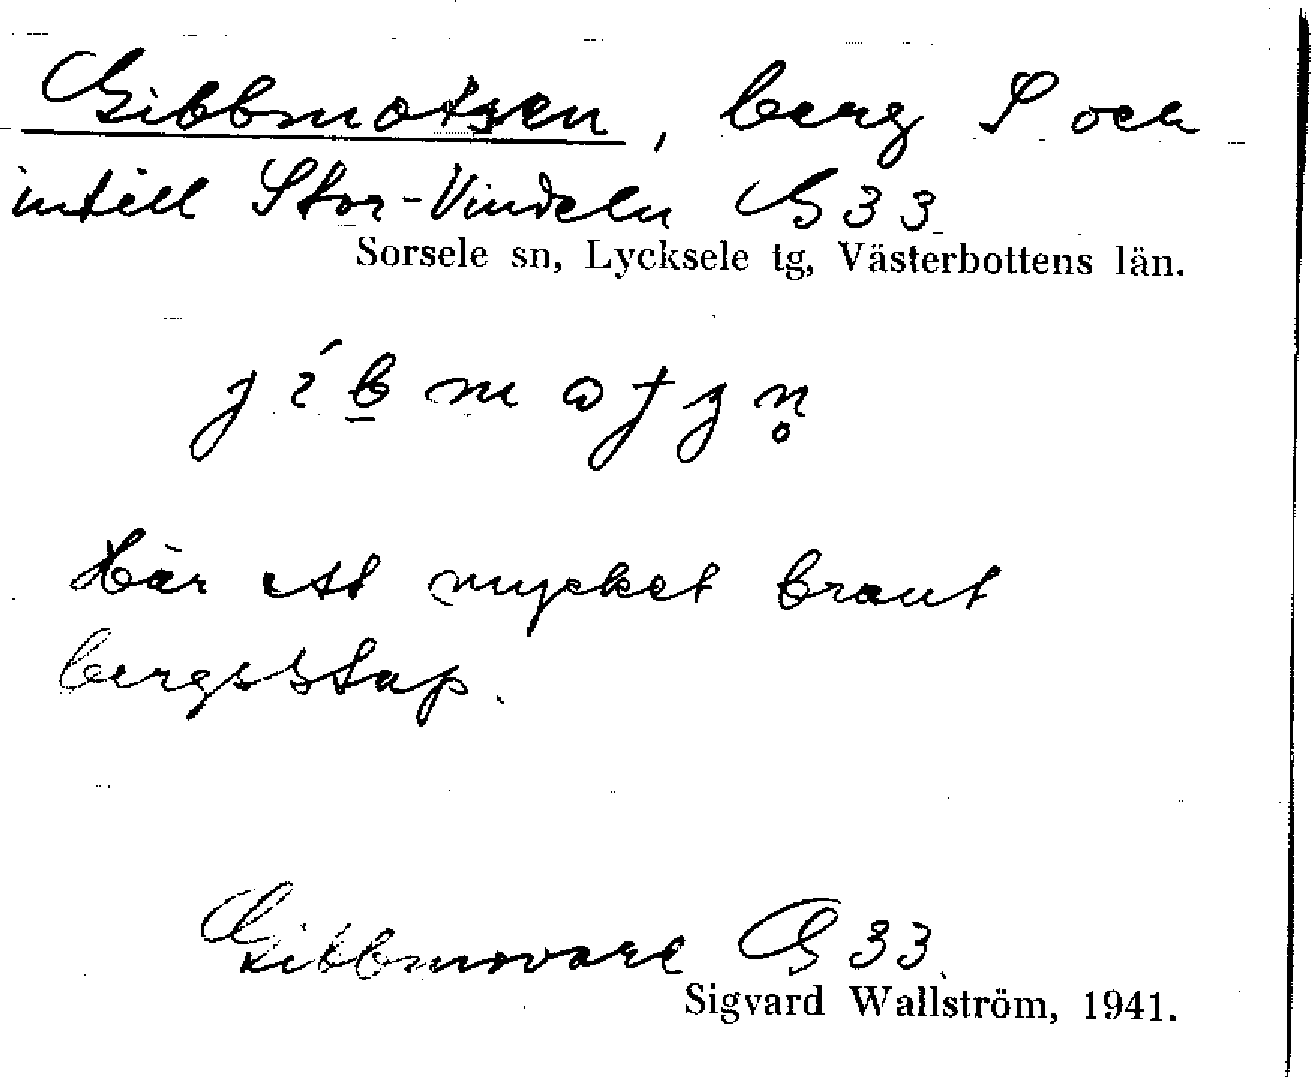 Gibbmotsen, berg S och
intill Stor-Vindeln G 33
Sorsele sn, Lycksele tg, Västerbottens län.
Här ett mycket brant
bergsstup.
Gibbmovare G 33
Sigvard Wallström, 1941.